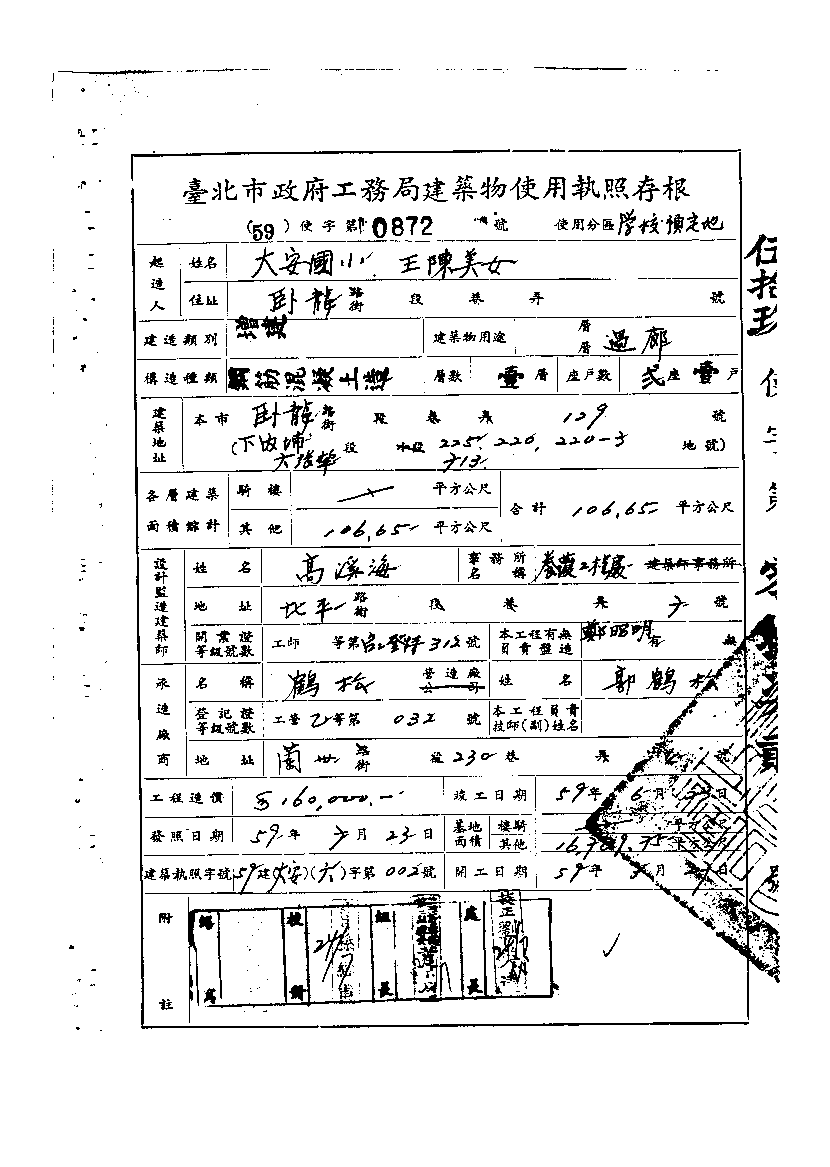 臺北市政府工務局建築物使用執照存根
(59) 使字第 0872 號 使用分區 学校預定地
起造人 姓名 大安國小 王陳美女
住址 臥龍 路街 段 巷 弄 號
建造類別 增建 建築物用途 層層 過廊
構造種類 鋼筋混凝土造 層數 壹層 座戶數 弍座壹戶
建築地址 本市 臥龍 路街 段 巷 弄 129 號
(下内埔 段 小段 225, 226, 220-3 地號)
各層建築面積總計 騎樓 平方公尺 合計 106.65 平方公尺
其他 106.65 平方公尺
設計監造建築師 姓名 高溪海 事務所名稱 建築師事務所
地址 北平 路街 段 巷 弄 號
開業證等級號數 工師 等第 312號 本工程有無負責監造 鄭昭明 有 無
承造廠商 名稱 鶴松 營造廠公司 姓名 郭鶴松
登記證等級號數 工營乙等第 032 號 本工程負責技師(副)姓名
地址 蘭州 路街 段 230 巷 弄 號
工程造價 160,000.- 竣工日期 59年 6月 日
發照日期 59年 月 23日 基地面積 樓騎 平方公尺
其他 平方公尺
建築執照字號 59建(大安)(六)字第 002號 開工日期 59年 月 日
附註
繕寫 校對 組長 處長
伍拾玖 使字第 零 號